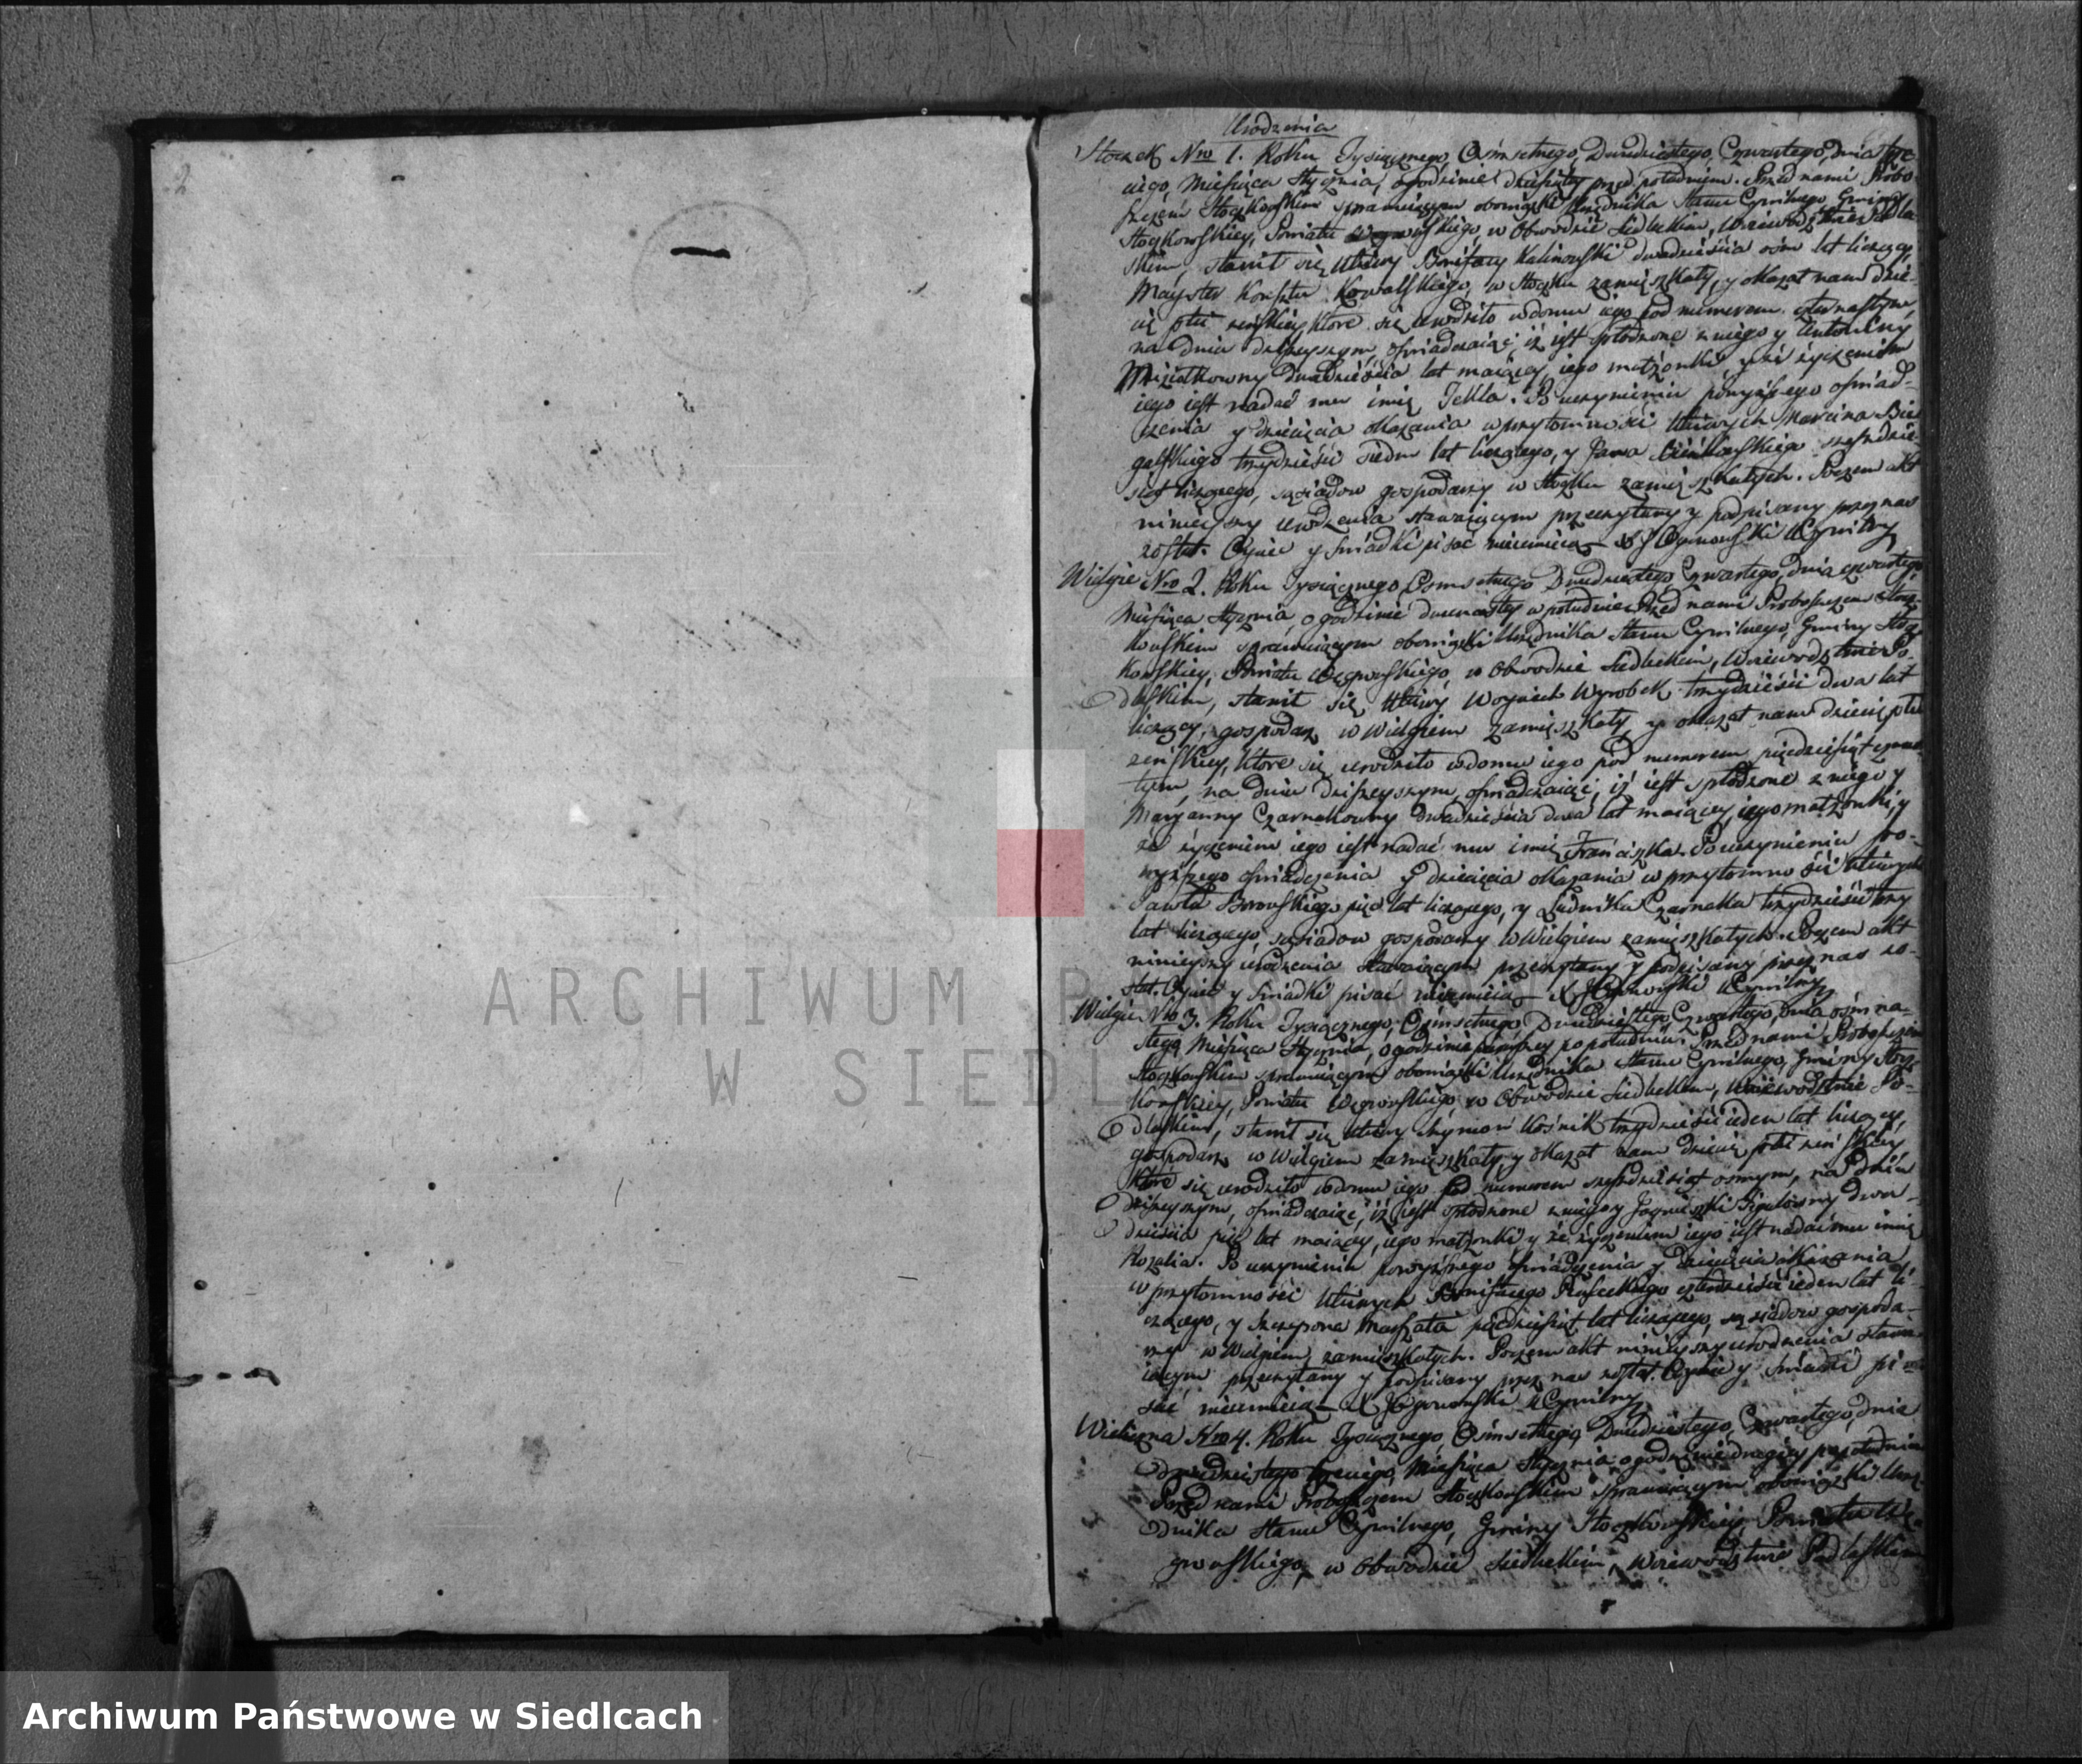 2
Urodzenia
Stoczek Nro 1. Roku Tysiącznego, Ośmsetnego, Dwudziestego, Czwartego, dnia trze-
ciego, Miesiąca Stycznia, o godzinie dziesiątey przed południem. Przed nami Probo-
szczem Stoczkowskim sprawuiącym obowiązki Urzędnika Stanu Cywilnego, Gminy
Stoczkowskiey, Powiatu Węgrowskiego w Obwodzie Siedleckim, Woiewodztwie Podla-
skim, stawił się Uczciwy Bonifacy Kalinowski dwadzieścia ośm lat liczący,
Mayster Kunsztu Kowalskiego, w Stoczku zamięszkały, y okazał nam dzie-
cię płci żeńskiey, które się urodziło w domu iego pod numerem czternastym,
na dniu dzisieyszym, oświadczaiąc iż iest spłodzone z niego y Antoniny
dwadzieścia lat maiącey, iego małżonki, y że życzeniem
iego iest nadać mu imię Tekla. Po uczynieniu powyższego oświad-
czenia y dziecięcia okazania w przytomności Uczciwych Marcina Bie-
galskiego trzydzieści siedm lat liczącego, y Jana sześćdzie-
siąt liczącego, sąsiadow gospodarzy w Stoczku zamięszkałych. Poczem akt
ninieyszy urodzenia stawaiącym przeczytany y podpisany przez nas
został. Oyciec y świadki pisać nieumieią — X J Ogonowski U Cywilny
Wielgie Nro 2. Roku Tysiącznego, Ośmsetnego Dwudziestego, Czwartego, dnia czwartego
Miesiąca Stycznia, o godzinie dwunastey w południe. Przed nami Proboszczem Stocz-
kowskim sprawuiącym obowiązki Urzędnika Stanu Cywilnego, Gminy Stocz-
kowskiey, Powiatu Węgrowskiego, w Obwodzie Siedleckim, Woiewodztwie Po-
dlaskim, stawił się Uczciwy Woyciech Wyrobek trzydzieści dwa lat
liczący, gospodarz w Wielgiem zamięszkały, y okazał nam dziecię płci
żeńskiey, które się urodziło w domu iego pod numerem pięćdziesiąt
tym, na dniu dzisieyszym, oświadczaiąc, iż iest spłodzone z niego y
Maryanny Czarnakowny dwadzieścia dwa lat maiącey, iego małżonki, y
że życzeniem iego iest nadać mu imię Franciszka. Po uczynieniu po-
wyższego oświadczenia y dziecięcia okazania w przytomności Uczciwych
Pawła Borowskiego lat liczącego, y Ludwika Czarnaka trzydzieści trzy
lat liczącego, sąsiadow gospodarzy w Wielgiem zamięszkałych. Poczem akt
ninieyszy urodzenia stawaiącym przeczytany y podpisany przez nas zo-
stał. Oyciec y świadki pisać nieumieią — X J Ogonowski U Cywilny
Wielgie Nro 3. Roku Tysiącznego, Ośmsetnego, Dwudziestego Czwartego, dnia ośmna-
stego Miesiąca Stycznia, o godzinie po południu. Przed nami Proboszczem
Stoczkowskim sprawuiącym obowiązki Urzędnika Stanu Cywilnego, Gminy Stocz-
kowskiey, Powiatu Węgrowskiego w Obwodzie Siedleckim, Woiewodztwie Po-
dlaskim, stawił się Uczciwy Szymon Kośnik trzydzieści ieden lat liczący,
gospodarz w Wielgiem zamięszkały y okazał nam dziecię płci żeńskiey
które się urodziło w domu iego pod numerem sześćdziesiąt osmym, na dniu
dzisieyszym, oświadczaiąc, iż iest spłodzone z niego y Jagnieszki dwa-
dzieścia pięć lat maiącey, iego małżonki y że życzeniem iego iest nadać mu imię
Rozalia. Po uczynieniu powyższego oświadczenia y dziecięcia okazania
w przytomności Uczciwych Bonifacego czterdzieści ieden lat li-
czącego, y Szczepana pięćdziesiąt lat liczącego, sąsiadow gospoda-
rzy w Wielgiem zamięszkałych. Poczem akt ninieyszy urodzenia stawa-
iącym przeczytany y podpisany przez nas został. Oyciec y świadki pi-
sać nieumieią — X J Ogonowski U Cywilny
Wieliczna Nro 4. Roku Tysiącznego, Ośmsetnego, Dwudziestego, Czwartego, dnia
dwudziestego trzeciego, Miesiąca Stycznia, o godzinie drugiey po południu
Przed nami Proboszczem Stoczkowskim sprawuiącym obowiązki Urzę-
dnika Stanu Cywilnego, Gminy Stoczkowskiey, Powiatu Wę-
growskiego, w Obwodzie Siedleckim, Woiewodztwie Podlaskim
ARCHIWUM
W SIEDL
Archiwum Państwowe w Siedlcach